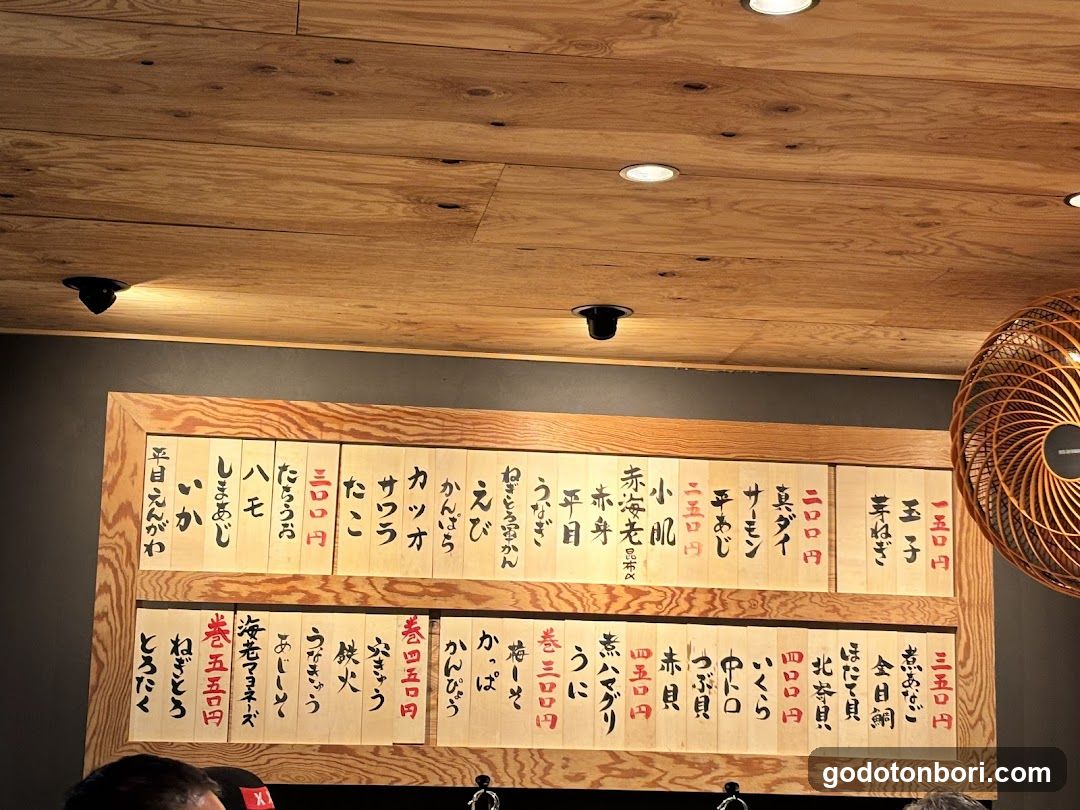 一五〇円
玉子
芽ねぎ
二〇〇円
真ダイ
サーモン
平あじ
二五〇円
小肌
赤海老
昆布〆
赤身
平目
うなぎ
ねぎとろ軍かん
えび
かんぱち
カツオ
サワラ
たこ
三〇〇円
たちうお
ハモ
しまあじ
いか
平目えんがわ
三五〇円
煮あなご
金目鯛
ほたて貝
北寄貝
四〇〇円
いくら
中トロ
つぶ貝
赤貝
四五〇円
煮ハマグリ
うに
巻三〇〇円
梅しそ
かっぱ
かんぴょう
巻四五〇円
穴きゅう
鉄火
うなきゅう
あじしそ
海老マヨネーズ
巻五五〇円
ねぎとろ
とろたく
godotonbori.com